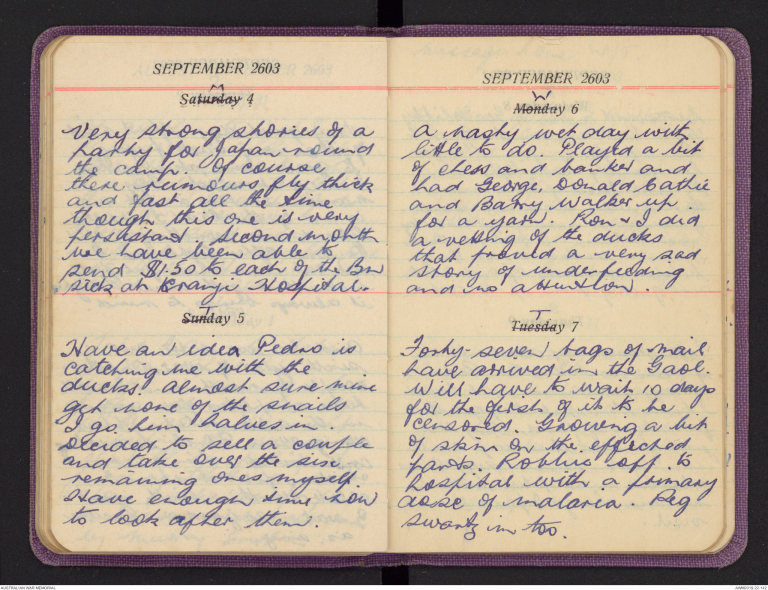 SEPTEMBER 2603
M
Saturday 4
Very strong stories of a
party for Japan round
the camp. Of course
there rumours fly thick
and fast all the time
though this one is very
persistant. Second month
we have been able to
send $1.50 to each of the Bn
sick at Kranji Hospital.
T
Sunday 5
Have an idea Pedro is
catching me with the
ducks. Almost sure mine
get none of the snails
I go him halves in.
Decided to sell a couple
and take over the six
remaining ones myself.
Have enough time now
to look after them.
SEPTEMBER 2603
W
Monday 6
A nasty wet day with
little to do. Played a bit
of chess and banker and
had George, Donald Cathie
and Barry Walker up
for a yarn. Ron & I did
a vetting of the ducks
that proved a very sad
story of underfeeding
and no attention.
T
Tuesday 7
Forty-seven bags of mail
have arrived in the Gaol.
Will have to wait 10 days
for the first of it to be
censored. Growing a bit
of skin on the effected
parts. off to
hospital with a primary
dose of malaria. Reg
Swartz in too.
AUSTRALIAN WAR MEMORIAL